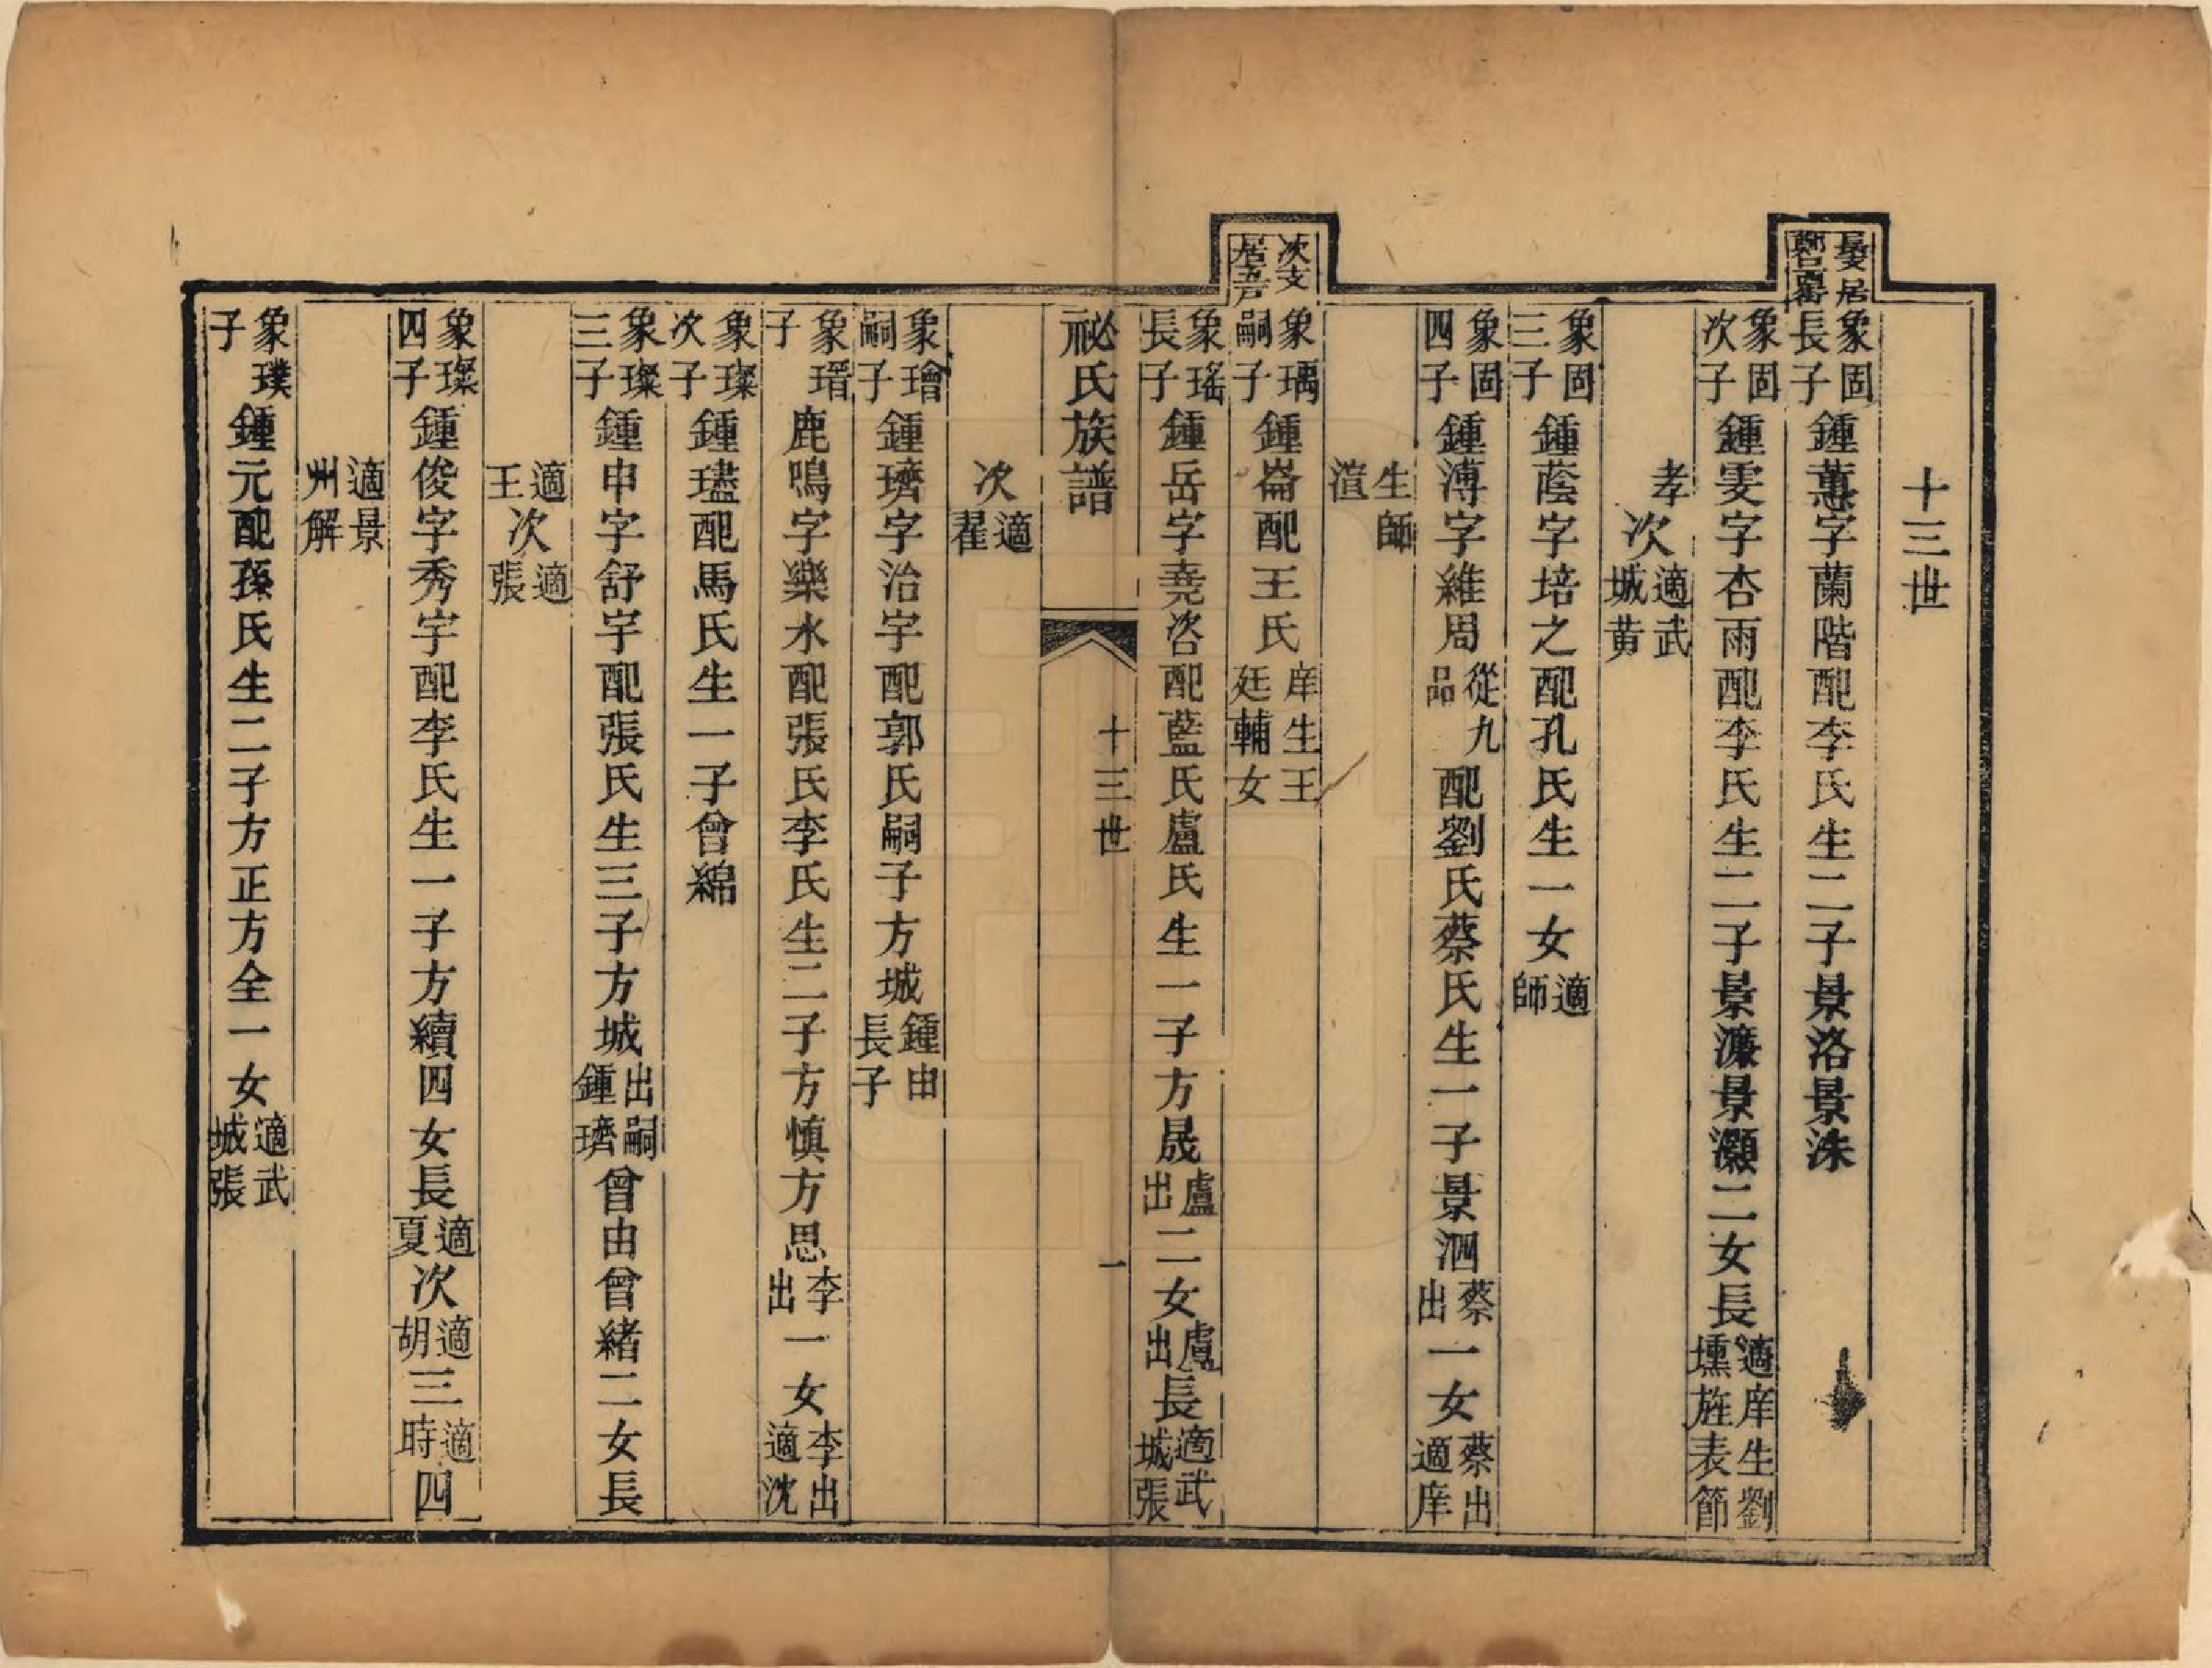 十三世
長支居
象固長子鍾蕙字蘭階配李氏生二子景洛景洙
象固次子鍾雯字杏雨配李氏生二子景濂景灝二女長適庠生劉壎旌表節
孝次適武城黄
象固三子鍾蔭字培之配孔氏生一女適師
象固四子鍾溥字維周從九品配劉氏蔡氏生一子景泗蔡出一女蔡出適庠
生師渲
次支居
象瑀嗣子鍾崙配王氏庠生王廷輔女
象瑤長子鍾岳字堯咨配藍氏盧氏生一子方晟盧出二女盧出長適武城張
祕氏族譜
十三世
一
次適翟
象璔嗣子鍾璾字治宇配郭氏嗣子方城鍾由長子
象瑨子鹿鳴字樂水配張氏李氏生二子方慎方思李出一女李出適沈
象璨次子鍾璶配馬氏生一子曾綿
象璨三子鍾申字舒宇配張氏生三子方城出嗣鍾璾曾由曾緒二女長
適王次適張
象璨四子鍾俊字秀宇配李氏生一子方續四女長適夏次適胡三適時四
適景州解
象璞子鍾元配孫氏生二子方正方全一女適武城張